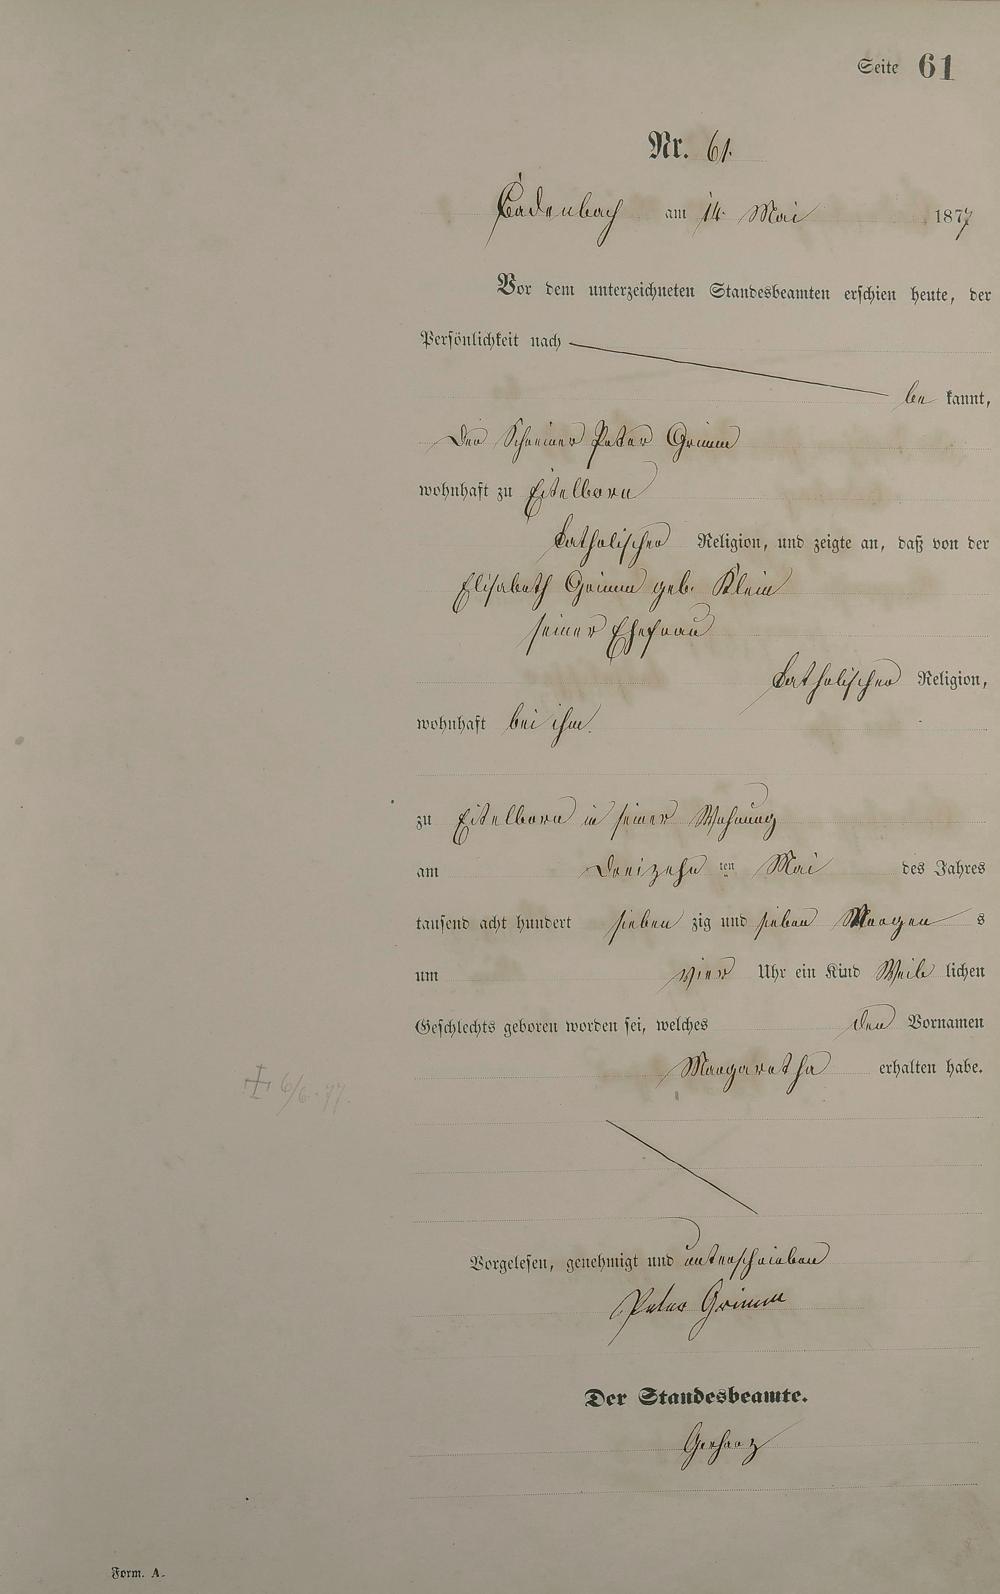 Seite 61
Nr. 61.
Cadenbach am 14. Mai 1877
Vor dem unterzeichneten Standesbeamten erschien heute, der
Persönlichkeit nach
be kannt,
Der Schreiner Peter Grimm
wohnhaft zu Eitelborn
katholischer Religion, und zeigte an, daß von der
Elisabeth Grimm geb. Klein
seiner Ehefrau
katholischer Religion,
wohnhaft bei ihm.
zu Eitelborn in seiner Wohnung
am Dreizehn ten Mai des Jahres
tausend acht hundert sieben zig und sieben Morgen s
um vier Uhr ein Kind Weib lichen
Geschlechts geboren worden sei, welches den Vornamen
Margaretha erhalten habe.
+ 6/6. 77.
Vorgelesen, genehmigt und unterschrieben
Peter Grimm
Der Standesbeamte.
Gerharz
Form. A.